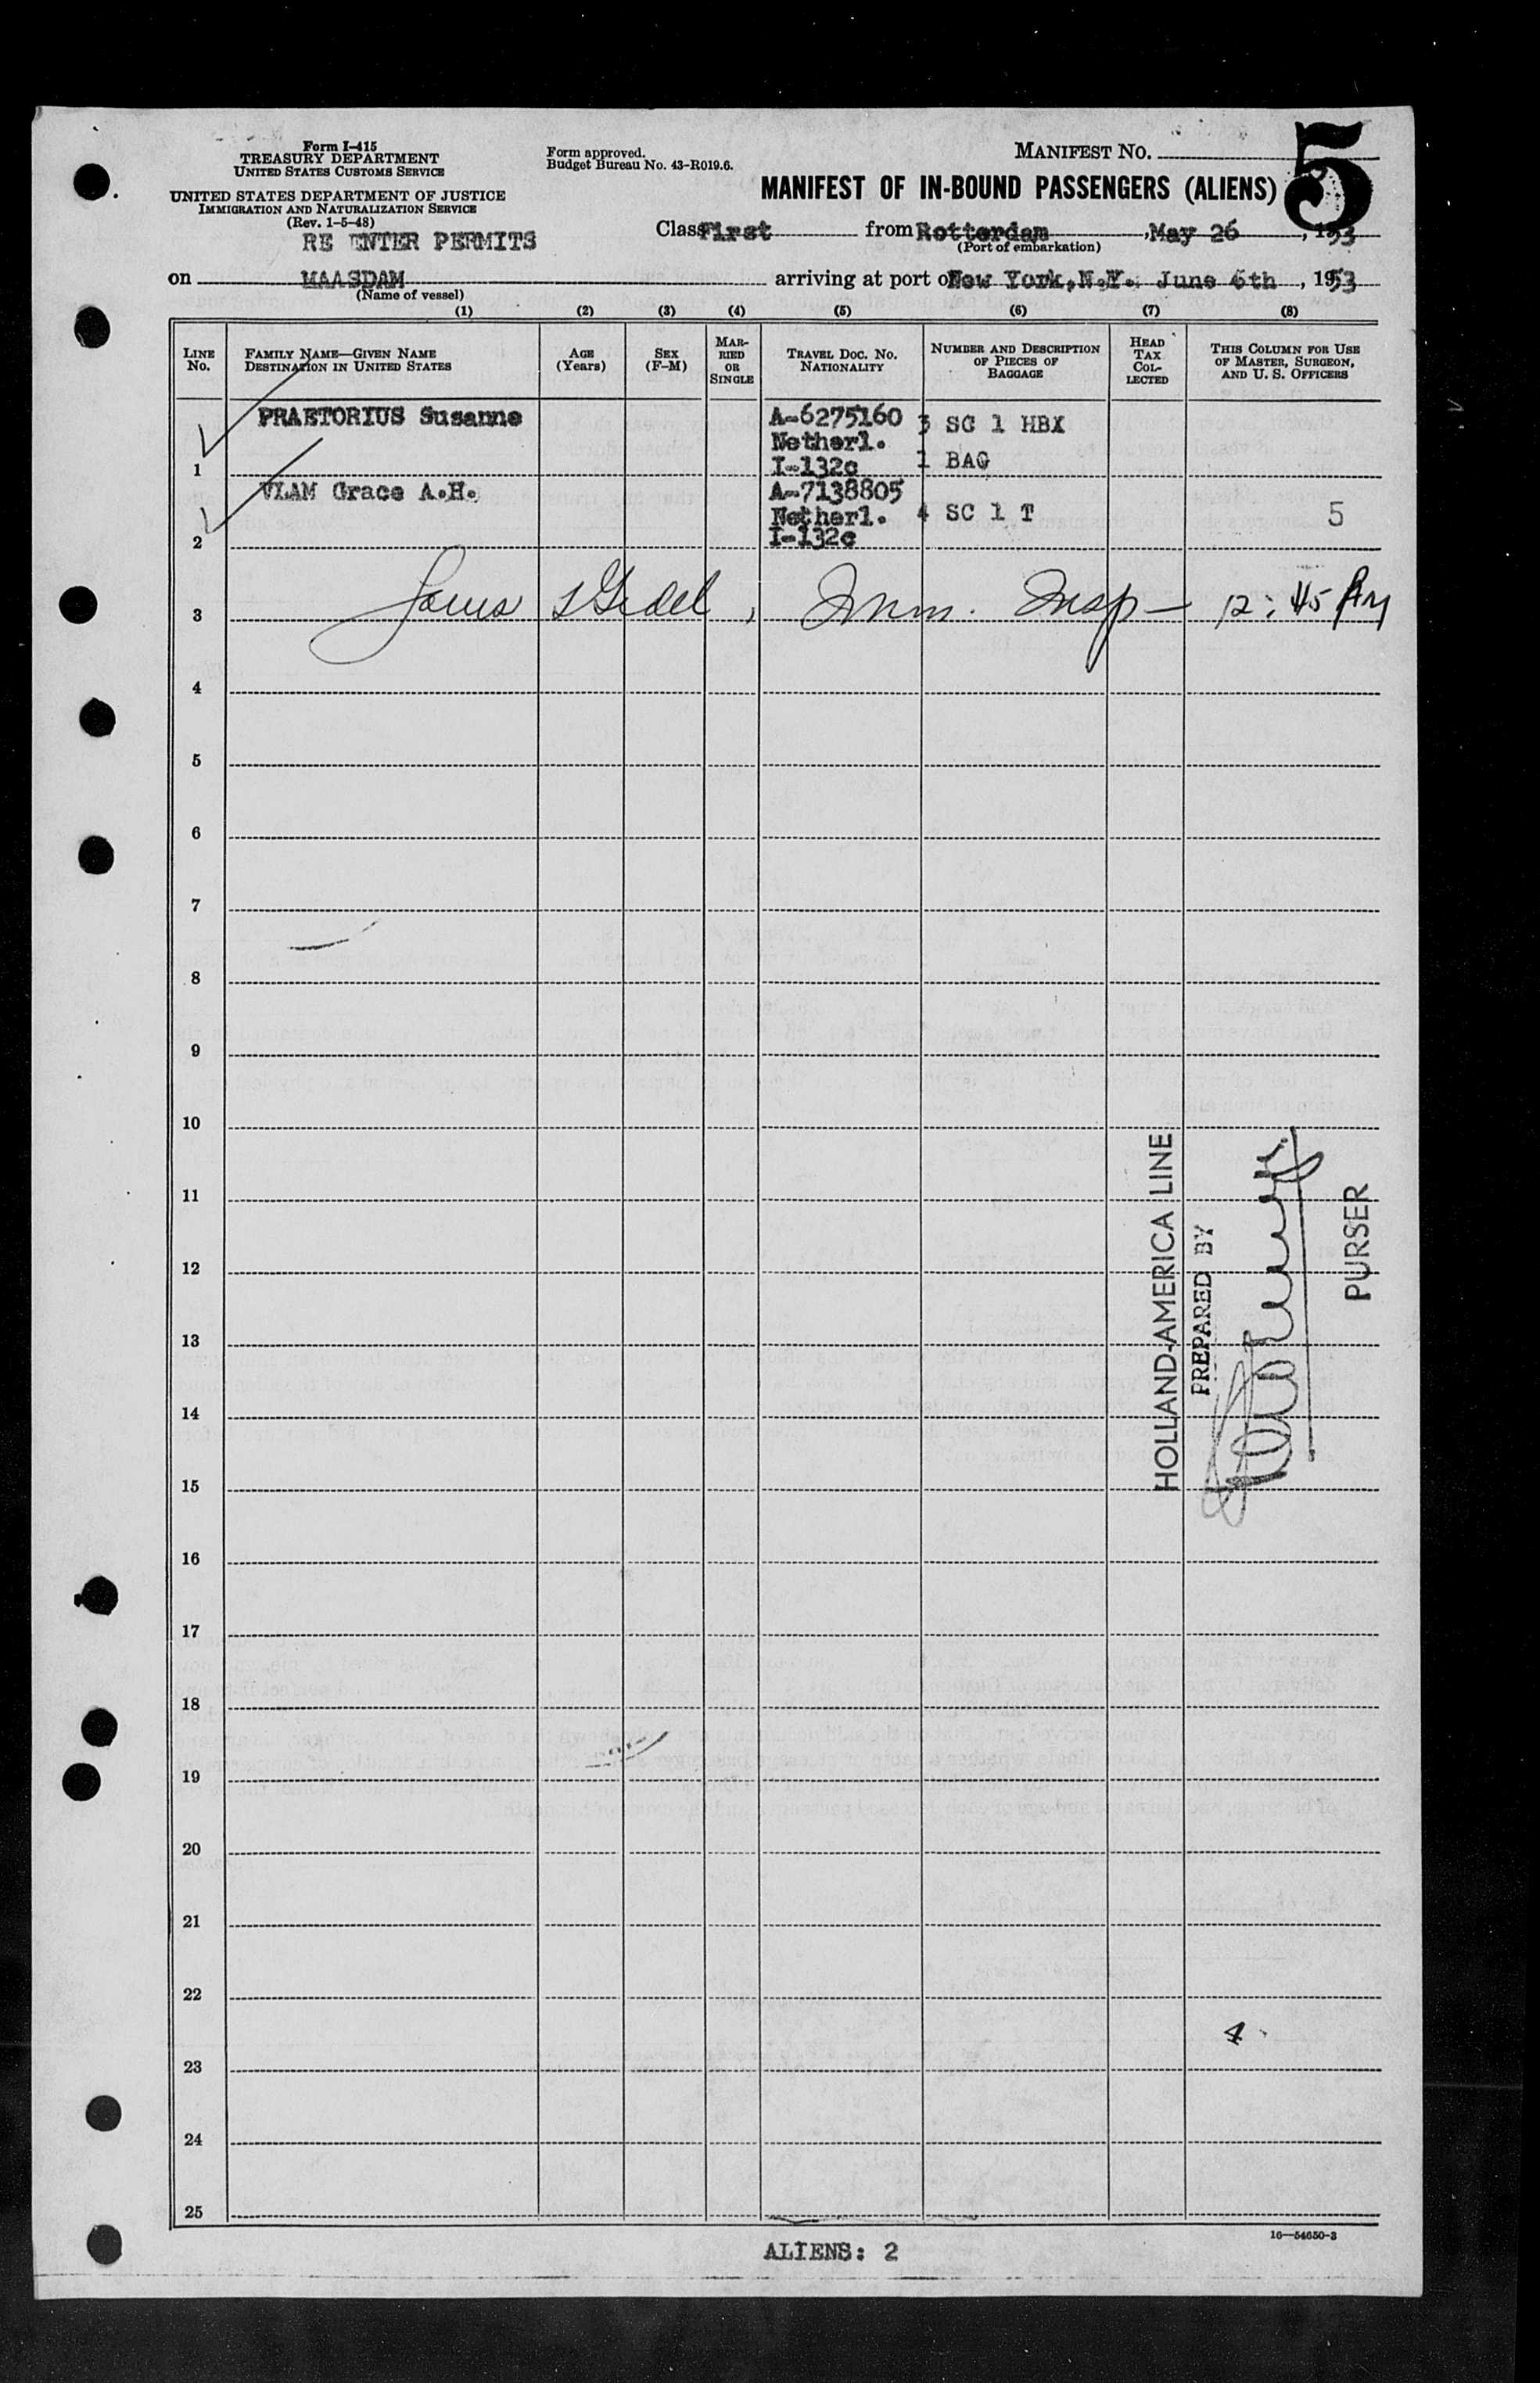 Form I-415
TREASURY DEPARTMENT
UNITED STATES CUSTOMS SERVICE
UNITED STATES DEPARTMENT OF JUSTICE
IMMIGRATION AND NATURALIZATION SERVICE
(Rev. 1-5-48)
RE ENTER PERMITS
Form approved.
Budget Bureau No. 43-R019.6.
MANIFEST NO.
5
MANIFEST OF IN-BOUND PASSENGERS (ALIENS)
Class First from Rotterdam, May 26, 1953
(Port of embarkation)
on MAASDAM arriving at port of New York, N.Y. June 6th, 1953
(Name of vessel)
(1) (2) (3) (4) (5) (6) (7) (8)
LINE No. FAMILY NAME—GIVEN NAME DESTINATION IN UNITED STATES AGE (Years) SEX (F-M) MARRIED OR SINGLE TRAVEL DOC. NO. NATIONALITY NUMBER AND DESCRIPTION OF PIECES OF BAGGAGE HEAD TAX COLLECTED THIS COLUMN FOR USE OF MASTER, SURGEON, AND U. S. OFFICERS
PRAETORIUS Susanne A-6275160 3 SC 1 HBX
Netherl.
1 I-132c 1 BAG
VLAM Grace A.H. A-7138805
Netherl. 4 SC 1 T 5
2 I-132c
3 Imm. Insp - 12:45 PM
4
5
6
7
8
9
10
11
12
13
14
15
16
17
18
19
20
21
22
4
23
24
25
HOLLAND-AMERICA LINE
PREPARED BY
PURSER
16—54650-3
ALIENS: 2